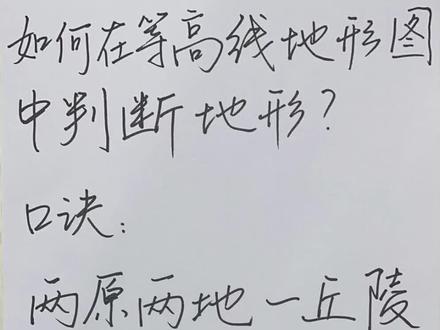 如何在等高线地形图
中判断地形?
口诀:
两原两地一丘陵